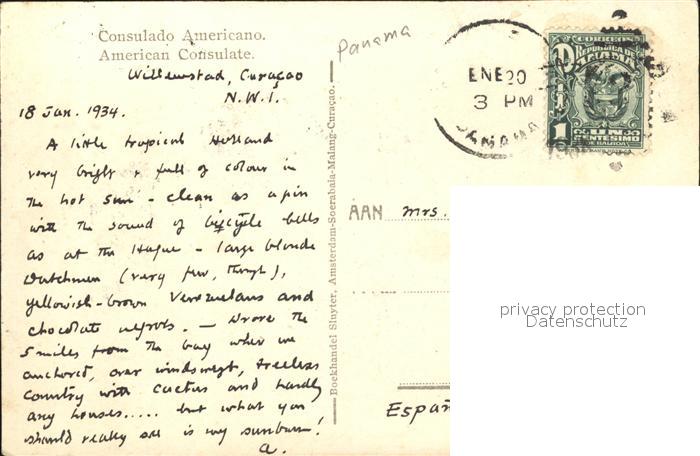 Consulado Americano.
American Consulate.
Willemstad, Curaçao
N.W.I.
18 Jan. 1934.
A little tropical Holland
very bright & full of colour in
the hot sun - clean as a pin
with the sound of bicycle bells
as at the Hague - large blonde
Dutchmen (very few, though),
yellowish-brown Venezuelans and
chocolate negroes. - Drove the
5 miles from the bay where we
anchored, over windswept, treeless
country with cactus and hardly
any houses..... but what you
should really see is my sunburn!
a.
Boekhandel Sluyter, Amsterdam-Soerabaia-Malang-Curaçao.
Panama
ENE 20
3 PM
PANAMA
CORREOS
REPUBLICA DE
PANAMA
1
UN
CENTESIMO
DE BALBOA
AAN Mrs.
Españ
privacy protection
Datenschutz